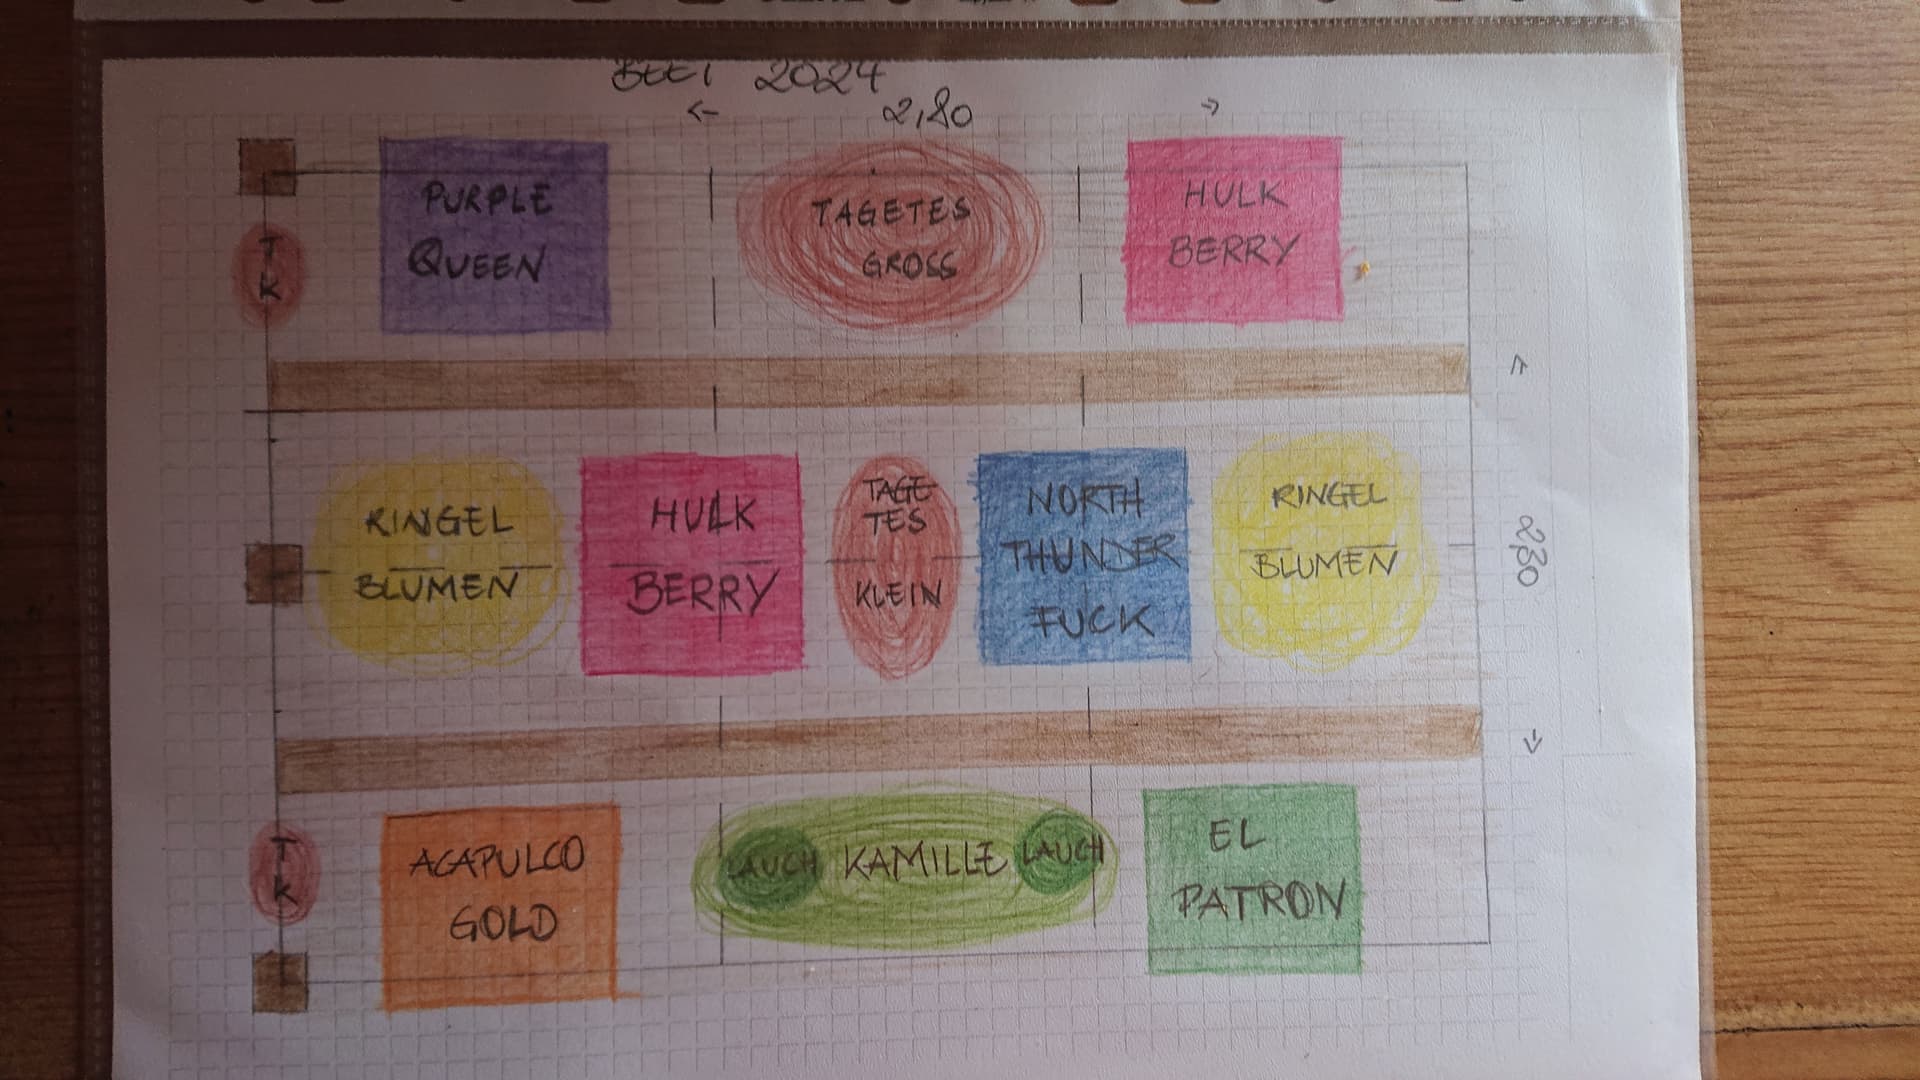 BEET 2024
<- 2,80 ->
PURPLE
QUEEN
TAGETES
GROSS
HULK
BERRY
T
K
RINGEL
BLUMEN
HULK
BERRY
TAGE
TES
KLEIN
NORTH
THUNDER
FUCK
RINGEL
BLUMEN
2,30
T
K
ACAPULCO
GOLD
LAUCH KAMILLE LAUCH
EL
PATRON